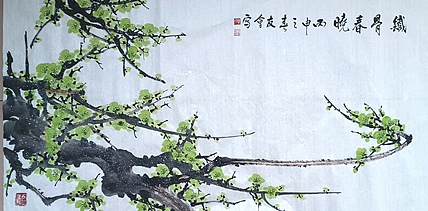 鐵骨春曉 丙申之春友會寫